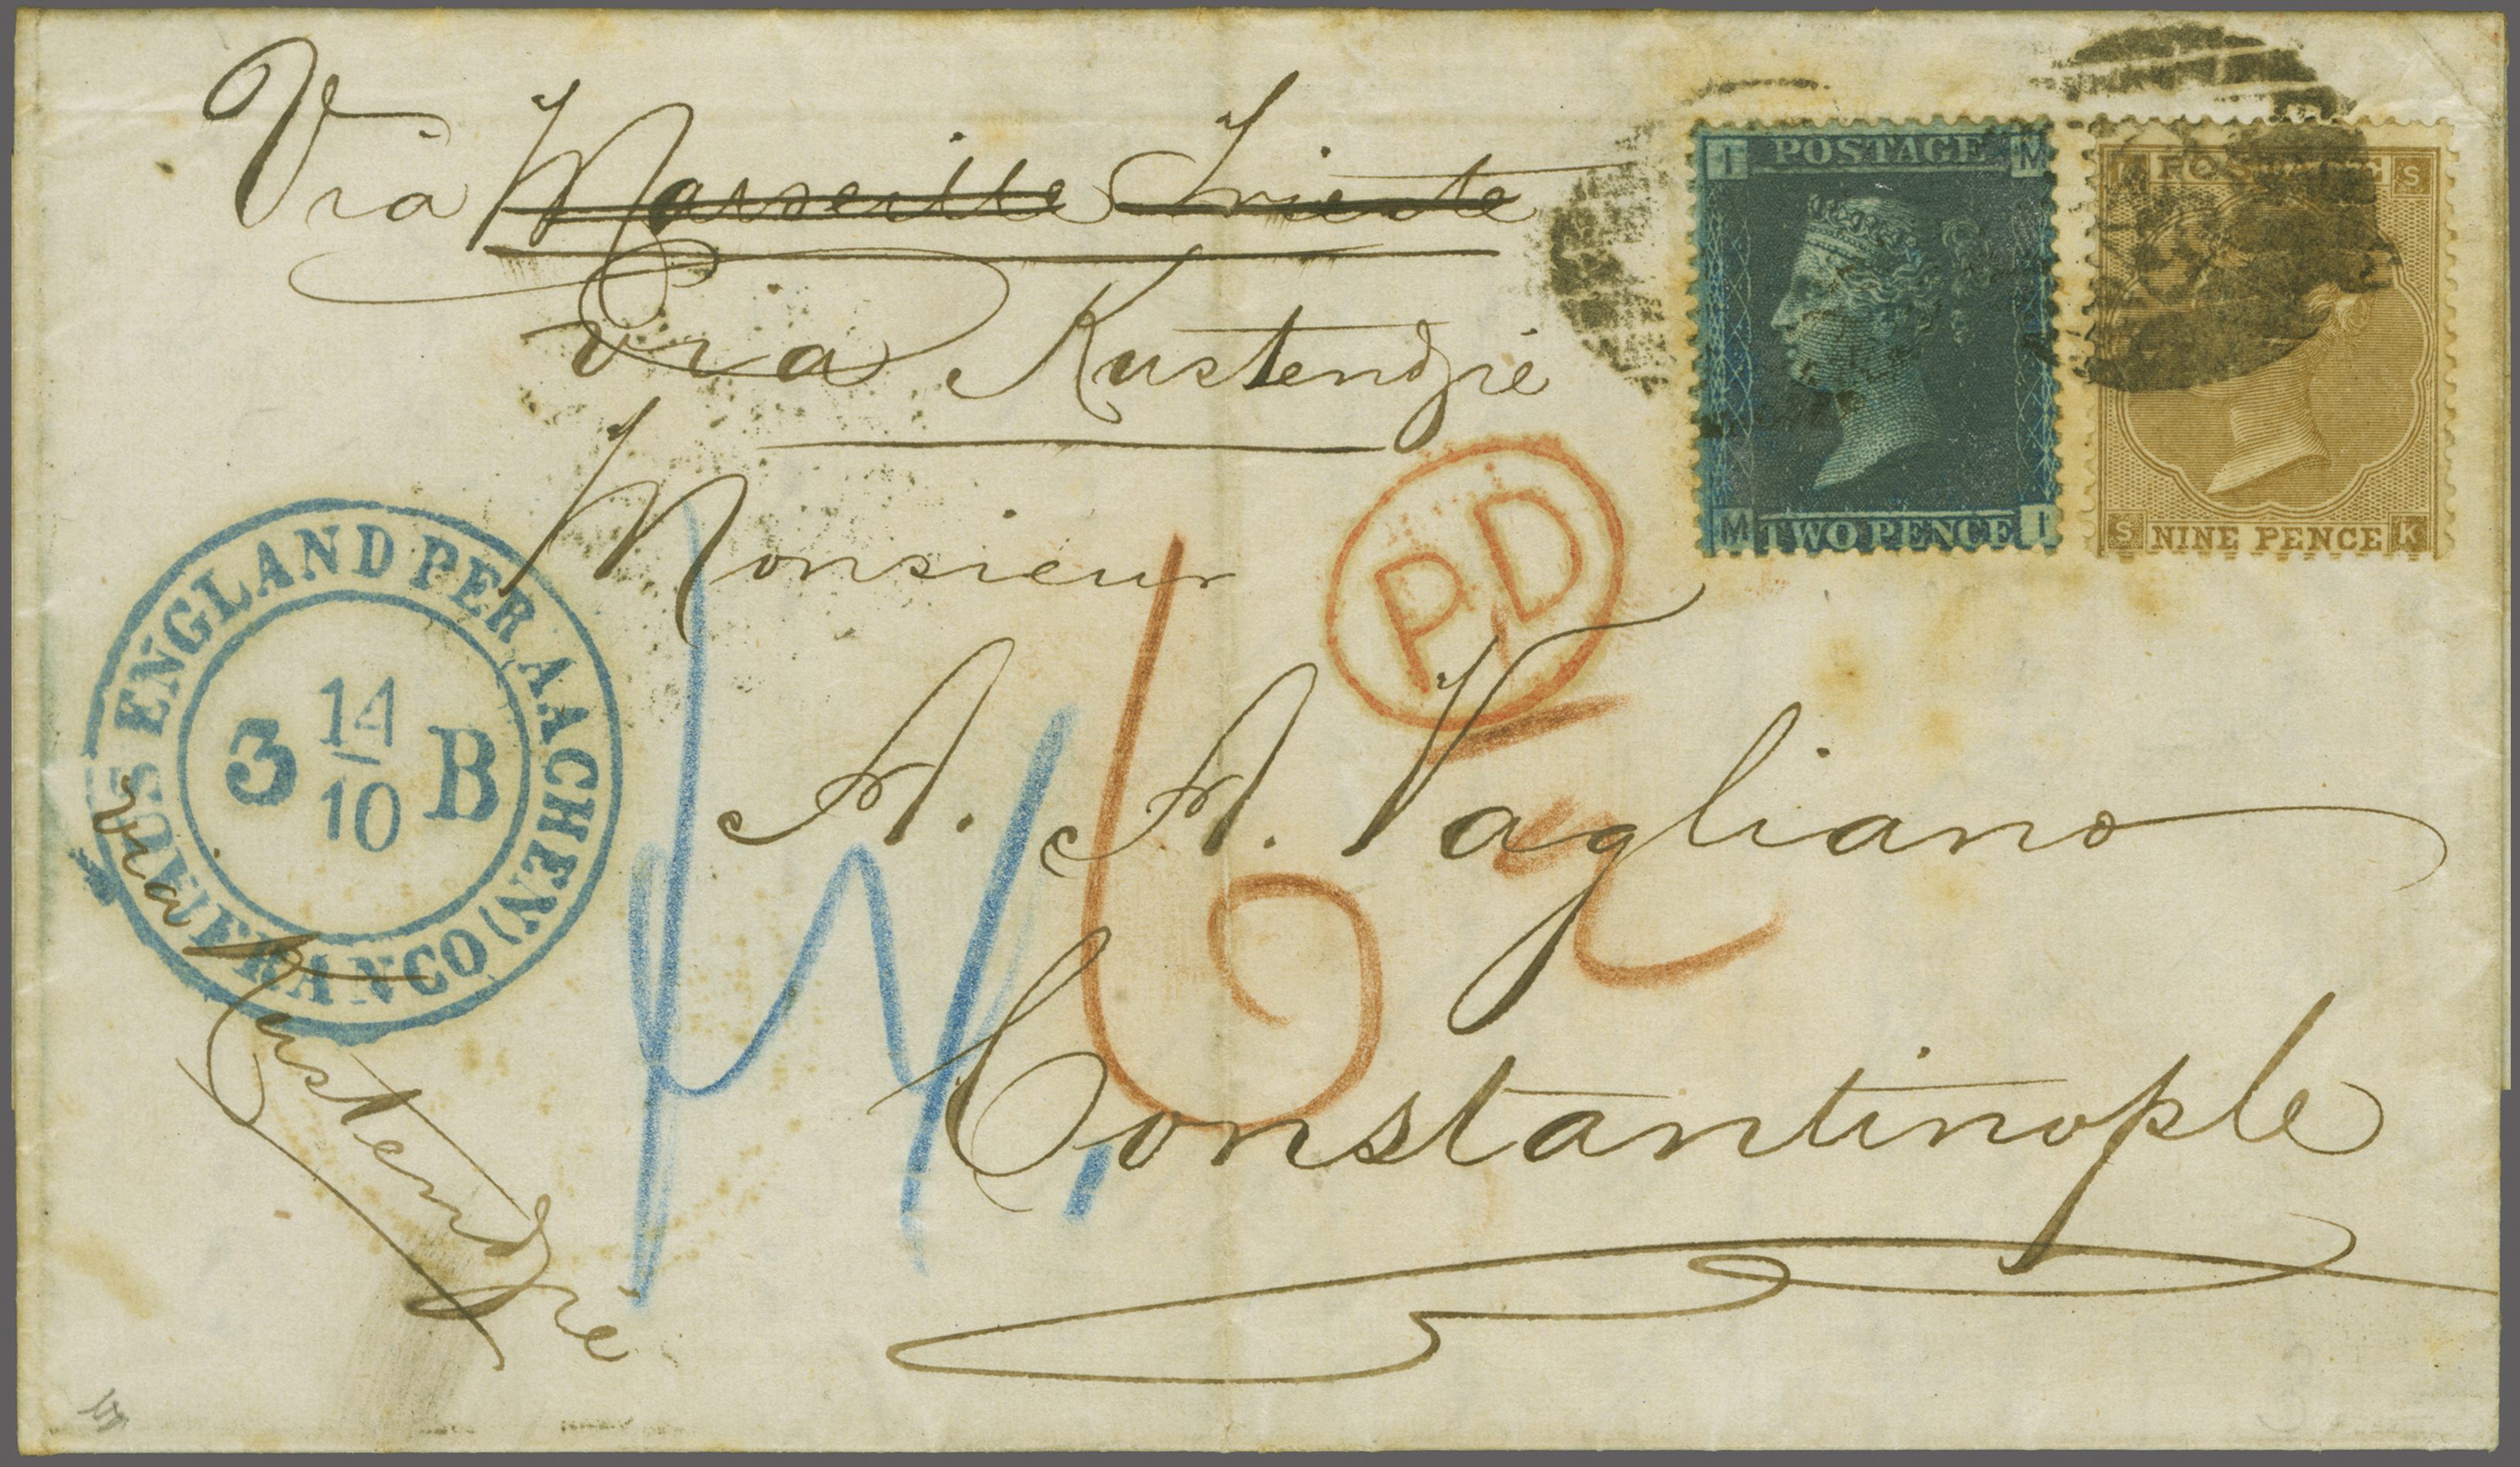 Via Marseille Trieste
via Kustendzié
Monsieur
A. A. Vagliano
Constantinople
via Kustendzié
AUS ENGLAND PER AACHEN
FRANCO
3 14 B
10
PD
I POSTAGE M
M TWO PENCE I
K POSTAGE S
S NINE PENCE K
6
2